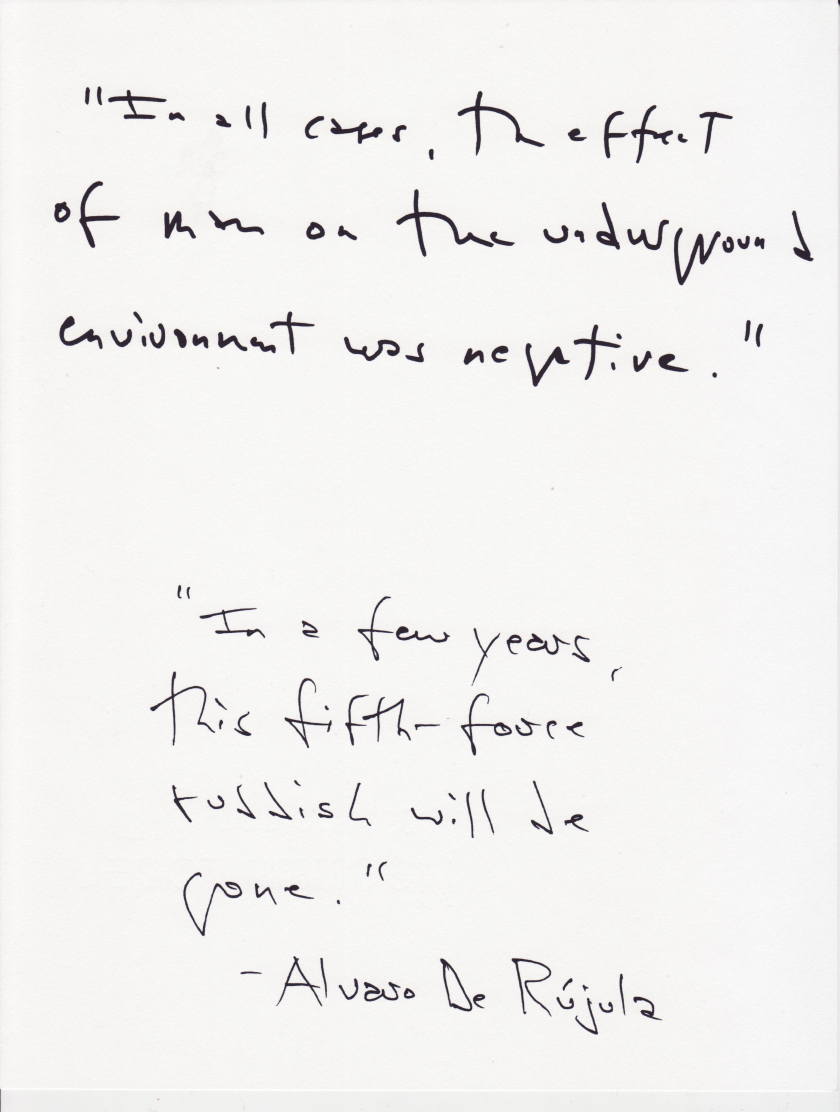 "In all cases, the effect
of man on the underground
environment was negative."
"In a few years,
this fifth-force
rubbish will be
gone."
- Alvaro De Rújula